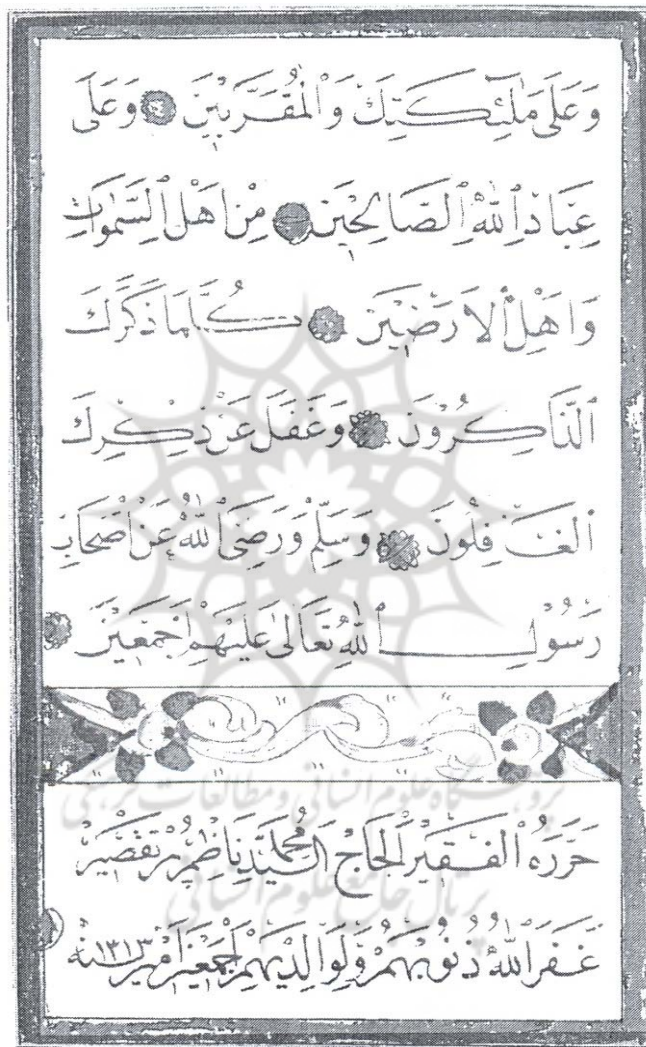 وَعَلَى مَلٰٓئِكَتِكَ وَالْمُقَرَّبِينَ وَعَلَى
عِبَادِ اللّٰهِ الصَّالِحِينَ مِنْ اَهْلِ السَّمٰوَاتِ
وَاَهْلِ الْاَرَضِينَ كُلَّمَا ذَكَرَكَ
الذَّاكِرُونَ وَغَفَلَ عَنْ ذِكْرِكَ
الْغَافِلُونَ وَسَلِّمْ وَرَضِيَ اللّٰهُ عَنْ اَصْحَابِ
رَسُولِ اللّٰهِ تَعَالٰى عَلَيْهِمْ اَجْمَعِينَ
پژوهشگاه علوم انسانی و مطالعات فرهنگی
حَرَّرَهُ الْفَقِيرُ الْحَاجُّ السَّيِّدُ مُحَمَّد
پرتال جامع علوم انسانی
غَفَرَ اللّٰهُ ذُنُوبَهُمْ وَلِوَالِدَيْهِمْ اَجْمَعِينَ اٰمِين سنه ١٣١٣